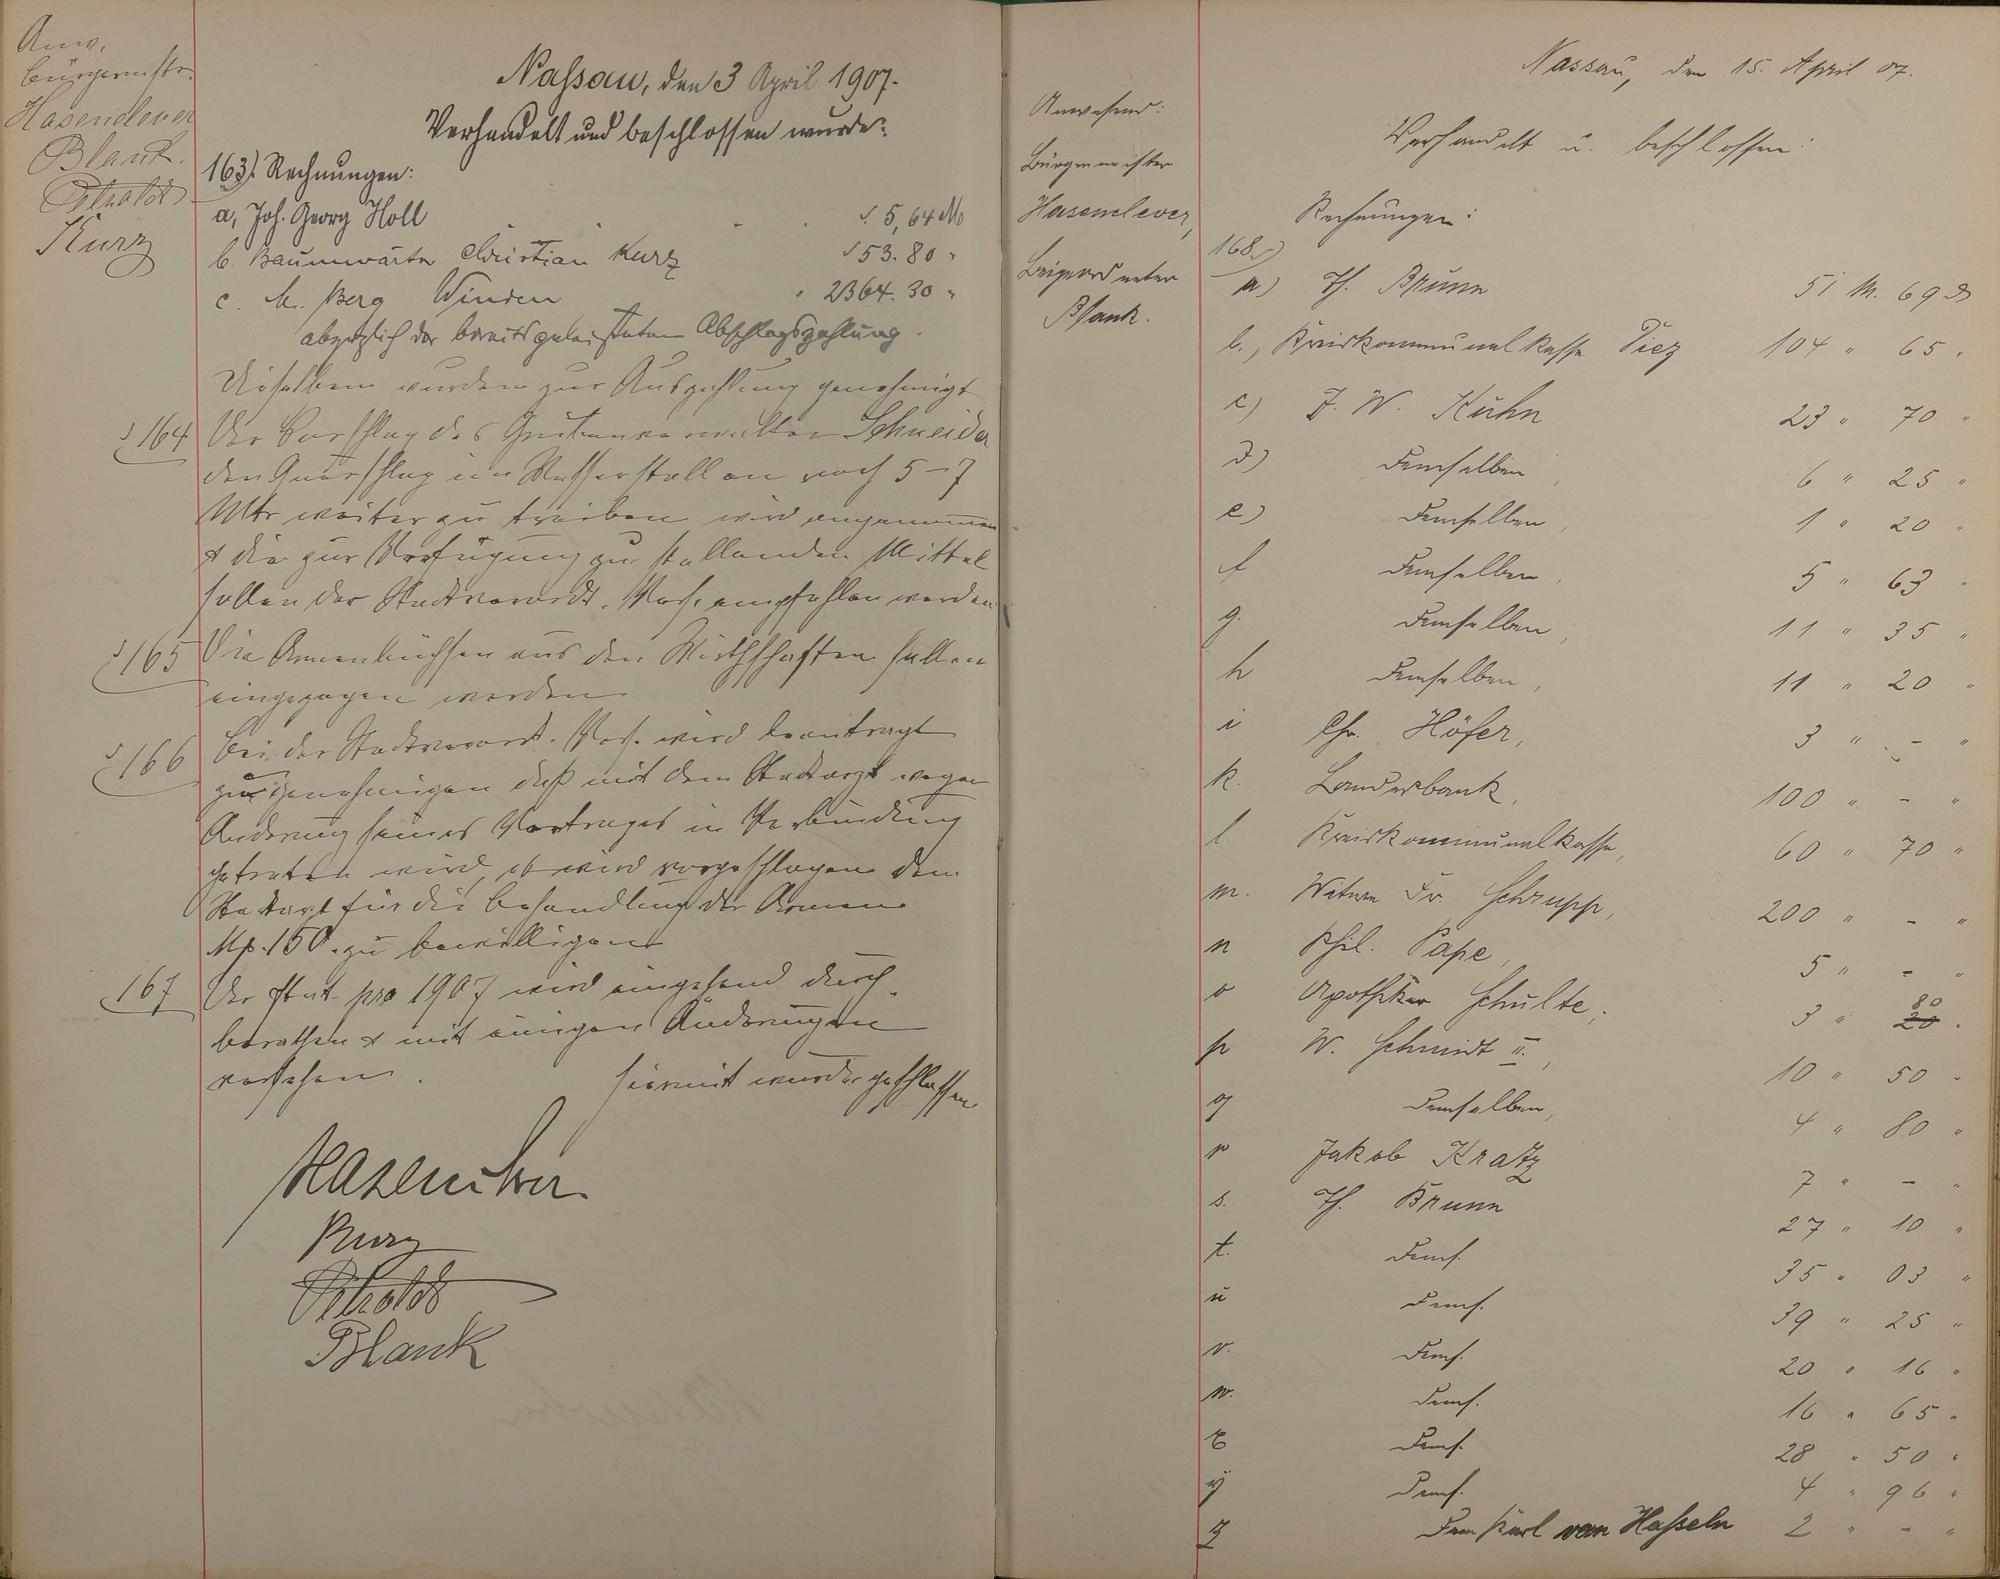 Anw.
Bürgermstr.
Hasenclever
Blank.
Petholdt
Kurz
Naſsau, den 3 April 1907.
Verhandelt und beschlossen wurde:
163). Rechnungen:
a, Joh. Georg Holl 5,64 M
b. Baumwärter Christian Kurz 53.80 "
c. M. Berg Winden " 2364.30 "
abzüglich der bereits geleisteten Abschlagszahlung.
Dieselben wurden zur Auszahlung genehmigt
§ 164 Der Vorschlag des Grubenverwalter Schneider
den Querschlag im Wasserstollen noch 5-7
Mtr weiter zu treiben wird angenommen
& die zur Verfügung zu stellenden Mittel
sollen der Stadtverordt. Vers. empfohlen werden
§ 165 Die Armenbüchsen aus den Wirthschaften sollen
eingezogen werden
§ 166 Bei der Stadtverordt. Vers. wird beantragt
zu genehmigen daß mit dem Stadtarzt wegen
Änderung seines Vertrages in Verbindung
getreten wird, es wird vorgeschlagen dem
Stadtarzt für die Behandlung der Armen
Mk. 150. zu bewilligen
167 Der Etat pro 1907 wird eingehend durch-
berathen & mit einigen Änderungen
versehen. Hiermit wurde geschlossen
Hasenclever
Kurz
Petholdt
Blank
Nassau, den 15. April 07.
Anwesend:
Bürgermeister
Hasenclever,
Beigeordneter
Blank.
Verhandelt u. beschlossen:
Rechnungen:
168.)
a) Th. Brunn 51 M. 69 d
b., Kreiskommunalkasse Diez 104 " 65 "
c) J. W. Kuhn 23 " 70 "
d) Demselben, 6 " 25 "
e) Demselben, 1 " 20 "
f Demselben, 5 " 63 "
g. Demselben, 11 " 35 "
h Demselben, 11 " 20 "
i Chr. Höfer, 3 " - "
k. Landesbank, 100 " - "
l. Kreiskommunalkasse, 60 " 70 "
m. Witwe Fr. Schrupp, 200 " - "
n Phil. Pape, 5 " - "
o Apotheker Schulte, 3 " 20 80 "
p W. Schmidt II., 10 " 50 "
q Demselben, 4 " 80 "
r Jakob Kratz 7 " - "
s. Th. Brunn 27 " 10 "
t. Dems. 35 " 03 "
u Dems. 39 " 25 "
v. Dems. 20 " 16 "
w. Dems. 16 " 65 "
x Dems. 28 " 50 "
y Dems. 4 " 96 "
z Dem Karl van Haſseln 2 " - "